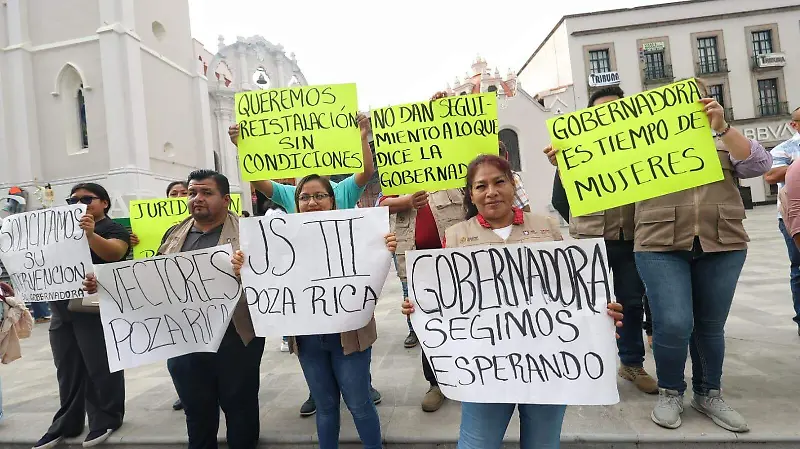 QUEREMOS
REISTALACIÓN
SIN
CONDICIONES
NO DAN SEGUI-
MIENTO A LO QUE
DICE LA
GOBERNADORA
GOBERNADORA
ES TIEMPO DE
MUJERES
SOLICITAMOS
GOBERNADORA
VECTORES
POZA RICA
JS III
POZA RICA
GOBERNADORA
SEGIMOS
ESPERANDO
TRIBUNA
Tribuna
BBVA